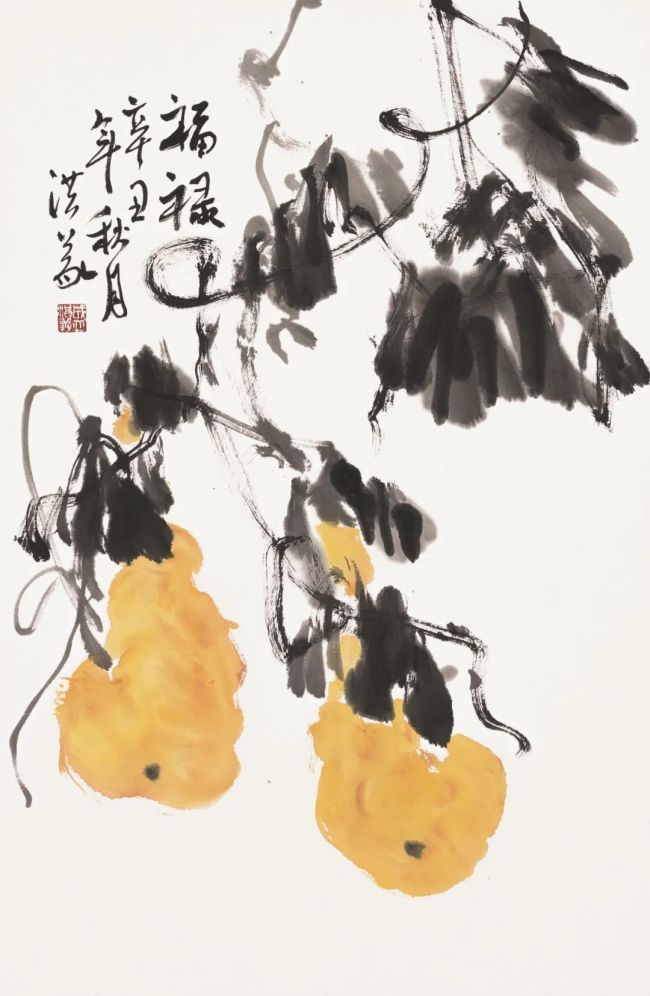 福禄
辛丑
年秋月
洪义